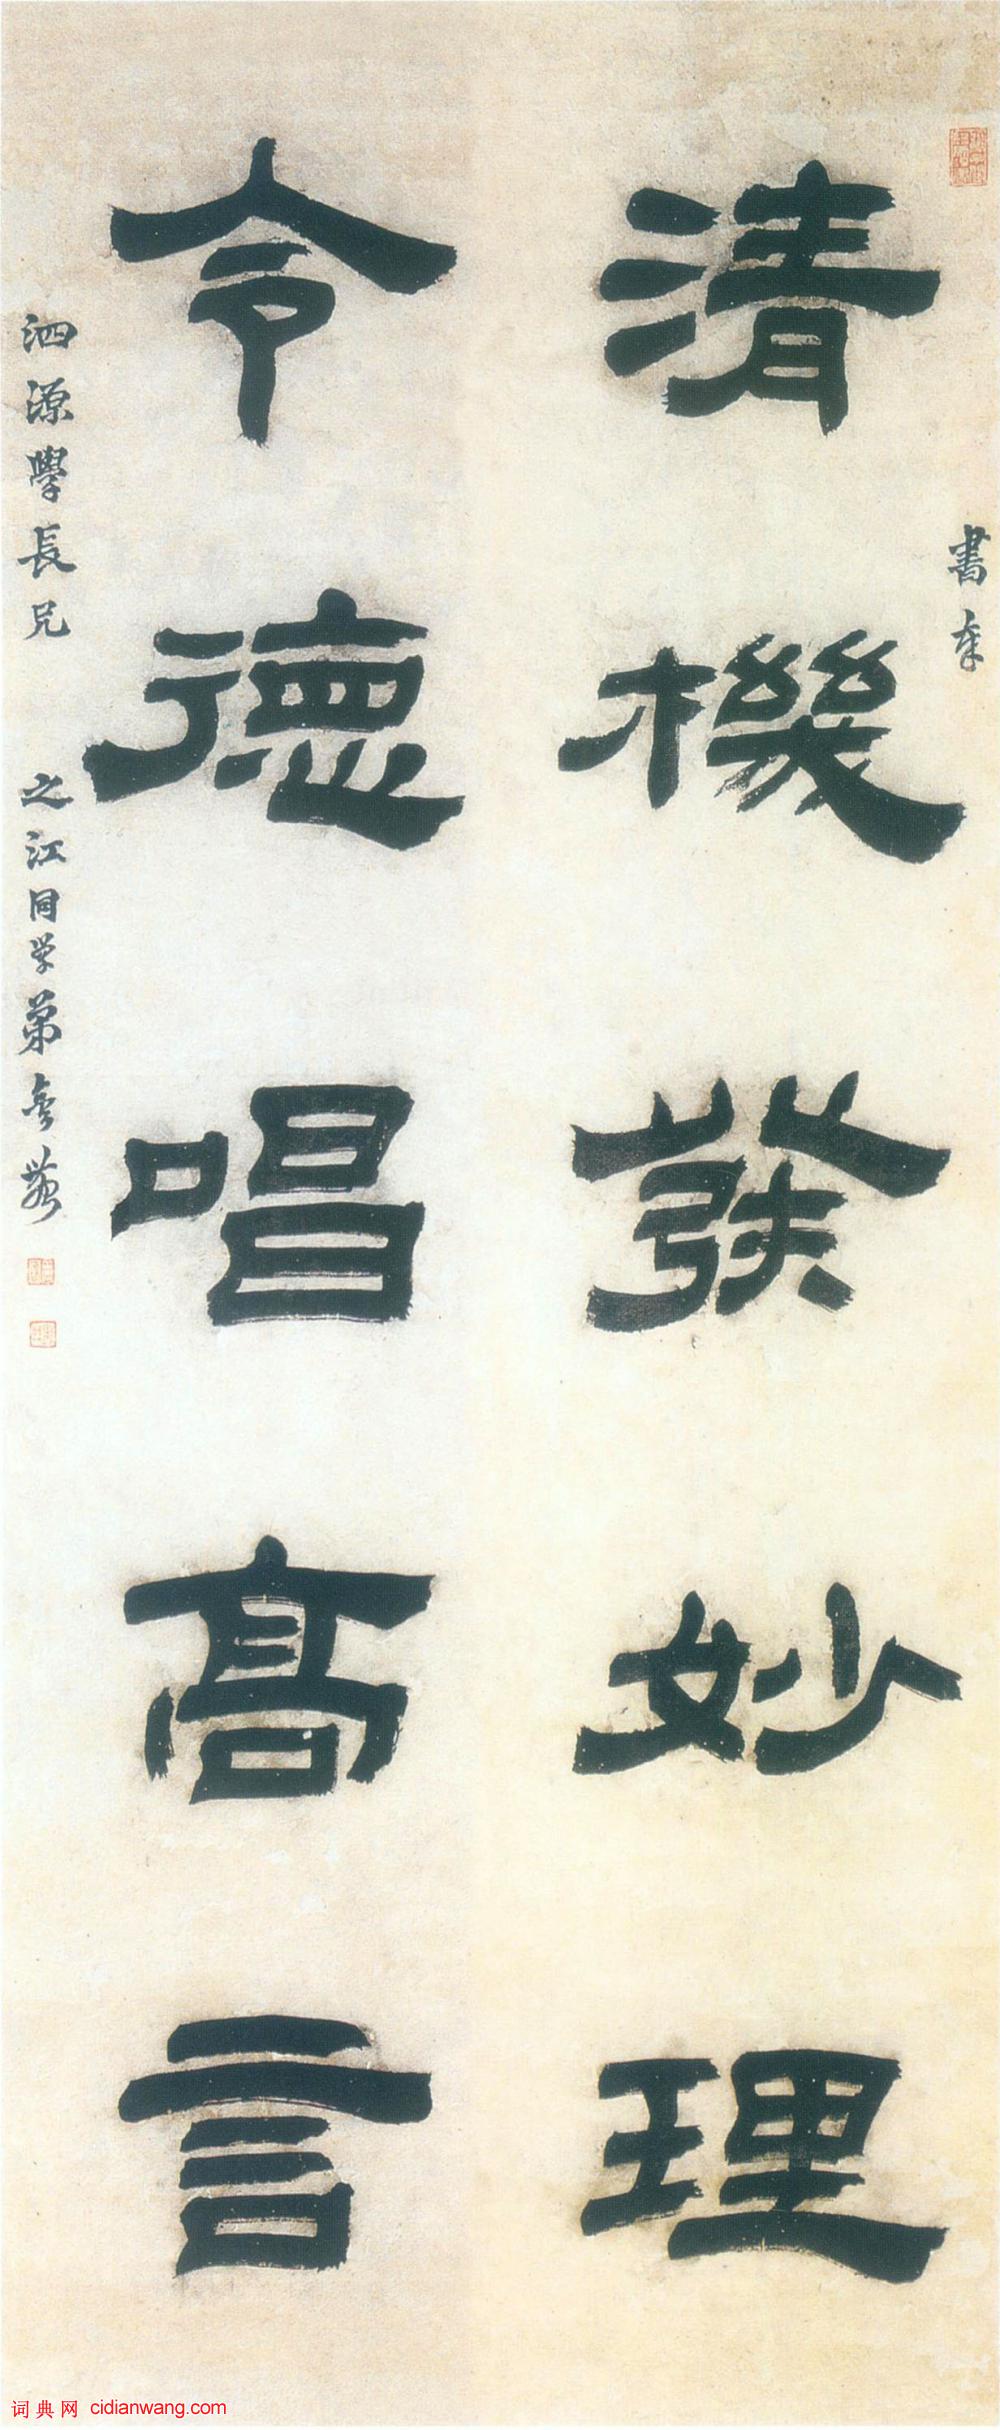 書奉
清機發妙理
令德唱高言
泗源學長兄
之江同学弟
词典网 cidianwang.com